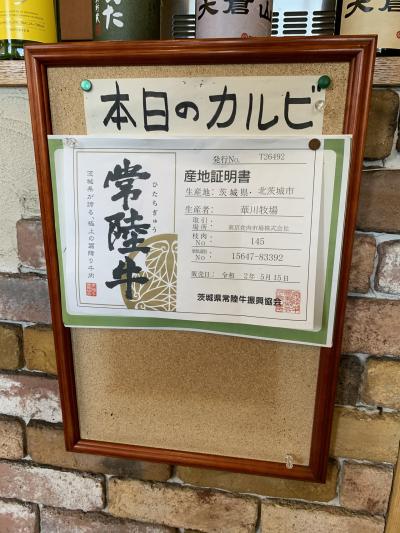 天倉山
本日のカルビ
茨城県が誇る、極上の霜降り牛肉
常陸牛
ひたちぎゅう
発行No. T26492
産地証明書
生産地: 茨城県・北茨城市
生産者: 華川牧場
取引場所: 東京食肉市場株式会社
枝肉No 145
No 15647-83392
販売日: 令和 2年 5月15日
茨城県常陸牛振興協会